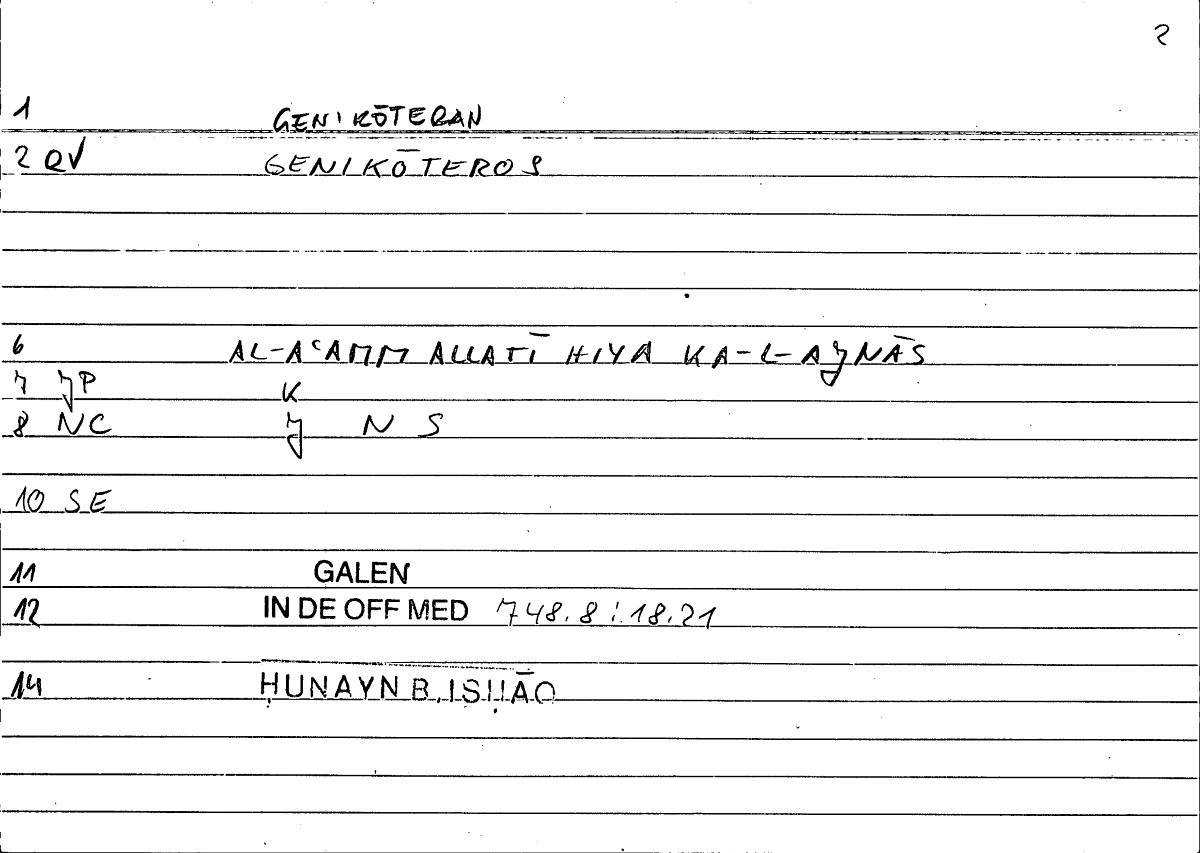 2
1 GENIKŌTERAN
2 QV GENIKŌTEROS
6 AL-AʿAMM ALLATĪ HIYA KA-L-AJNĀS
7 JP K
8 NC J N S
10 SE
11 GALEN
12 IN DE OFF MED 748.8 : 18.21
14 ḤUNAYN B. ISḤĀQ